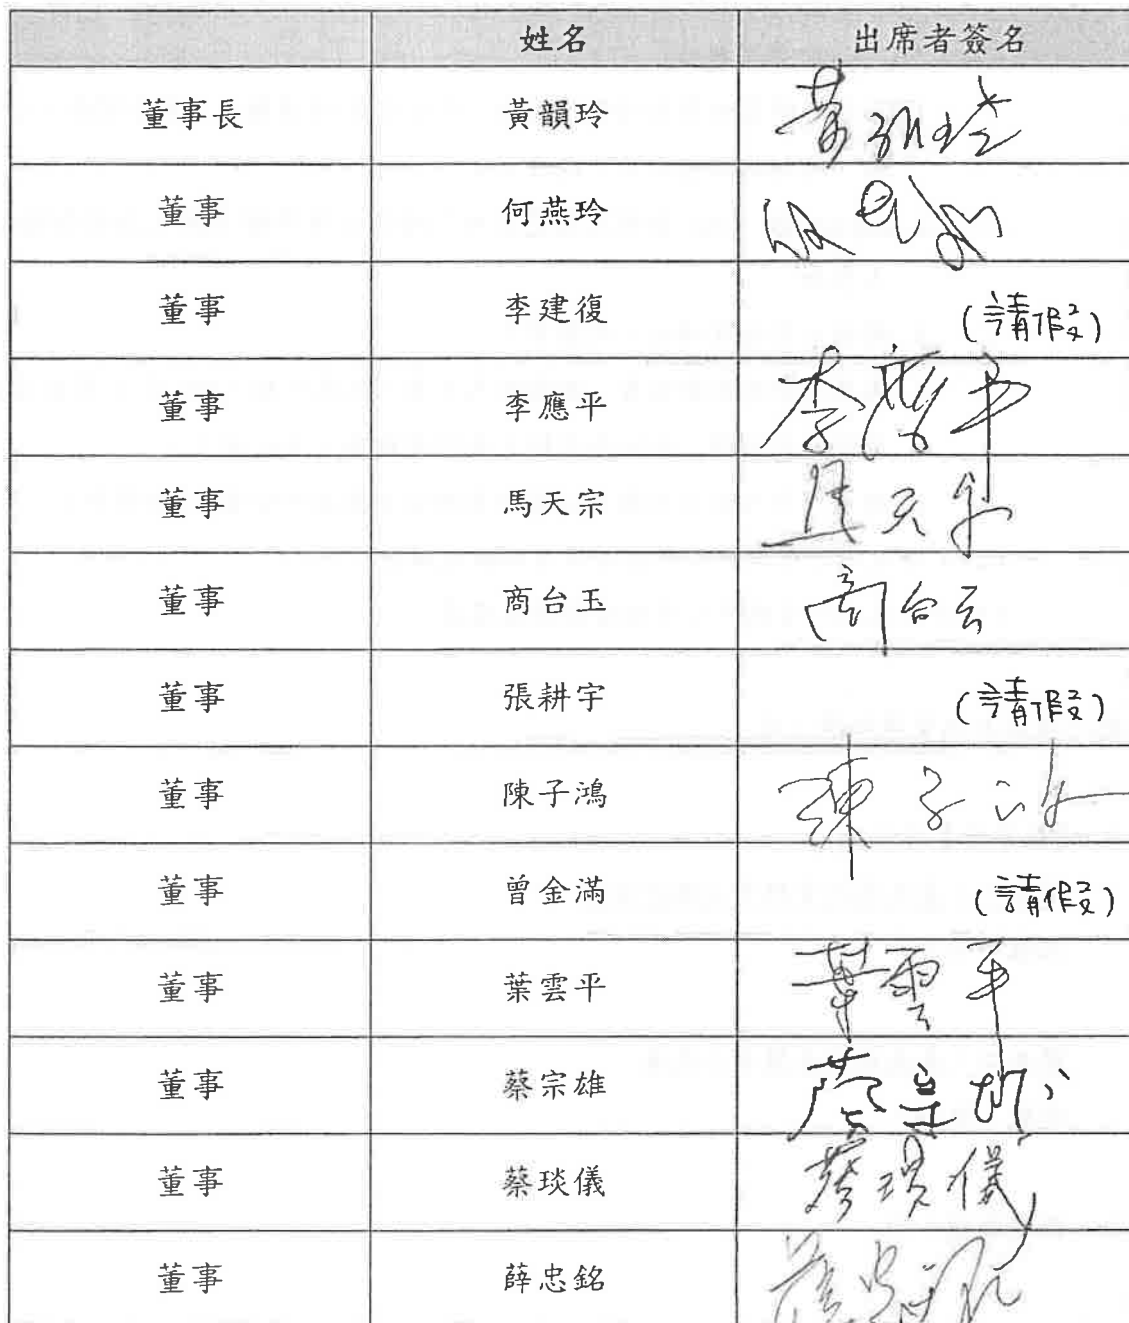 姓名 出席者簽名
董事長 黃韻玲 黃韻玲
董事 何燕玲
董事 李建復 (請假)
董事 李應平 李應平
董事 馬天宗 馬天宗
董事 商台玉 商台玉
董事 張耕宇 (請假)
董事 陳子鴻 陳子鴻
董事 曾金滿 (請假)
董事 葉雲平 葉雲平
董事 蔡宗雄 蔡宗雄
董事 蔡琰儀 蔡琰儀
董事 薛忠銘